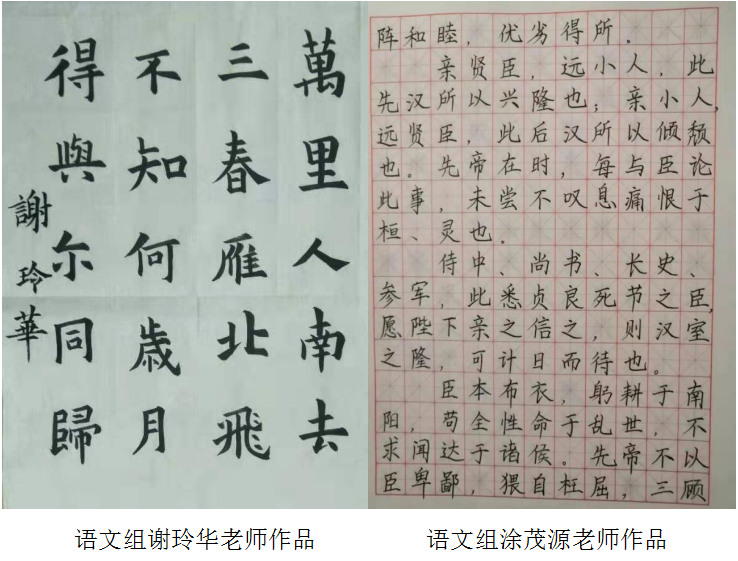 萬里人南去
三春雁北飛
不知何歳月
得與尔同歸
謝玲華
阵和睦，优劣得所．
亲贤臣，远小人，此
先汉所以兴隆也；亲小人，
远贤臣，此后汉所以倾颓
也。先帝在时，每与臣论
此事，未尝不叹息痛恨于
桓、灵也．
侍中、尚书、长史、
参军，此悉贞良死节之臣，
愿陛下亲之信之，则汉室
之隆，可计日而待也。
臣本布衣，躬耕于南
阳，苟全性命于乱世，不
求闻达于诸侯。先帝不以
臣卑鄙，猥自枉屈，三顾
语文组谢玲华老师作品
语文组涂茂源老师作品